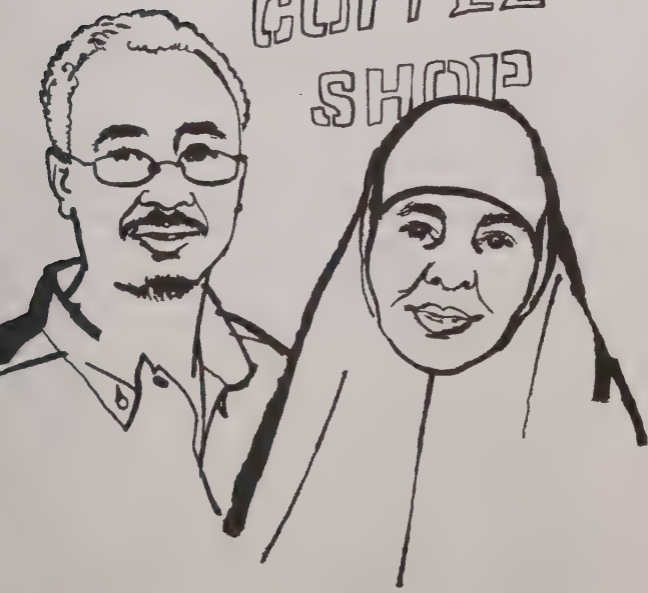 COFFEE
SHOP